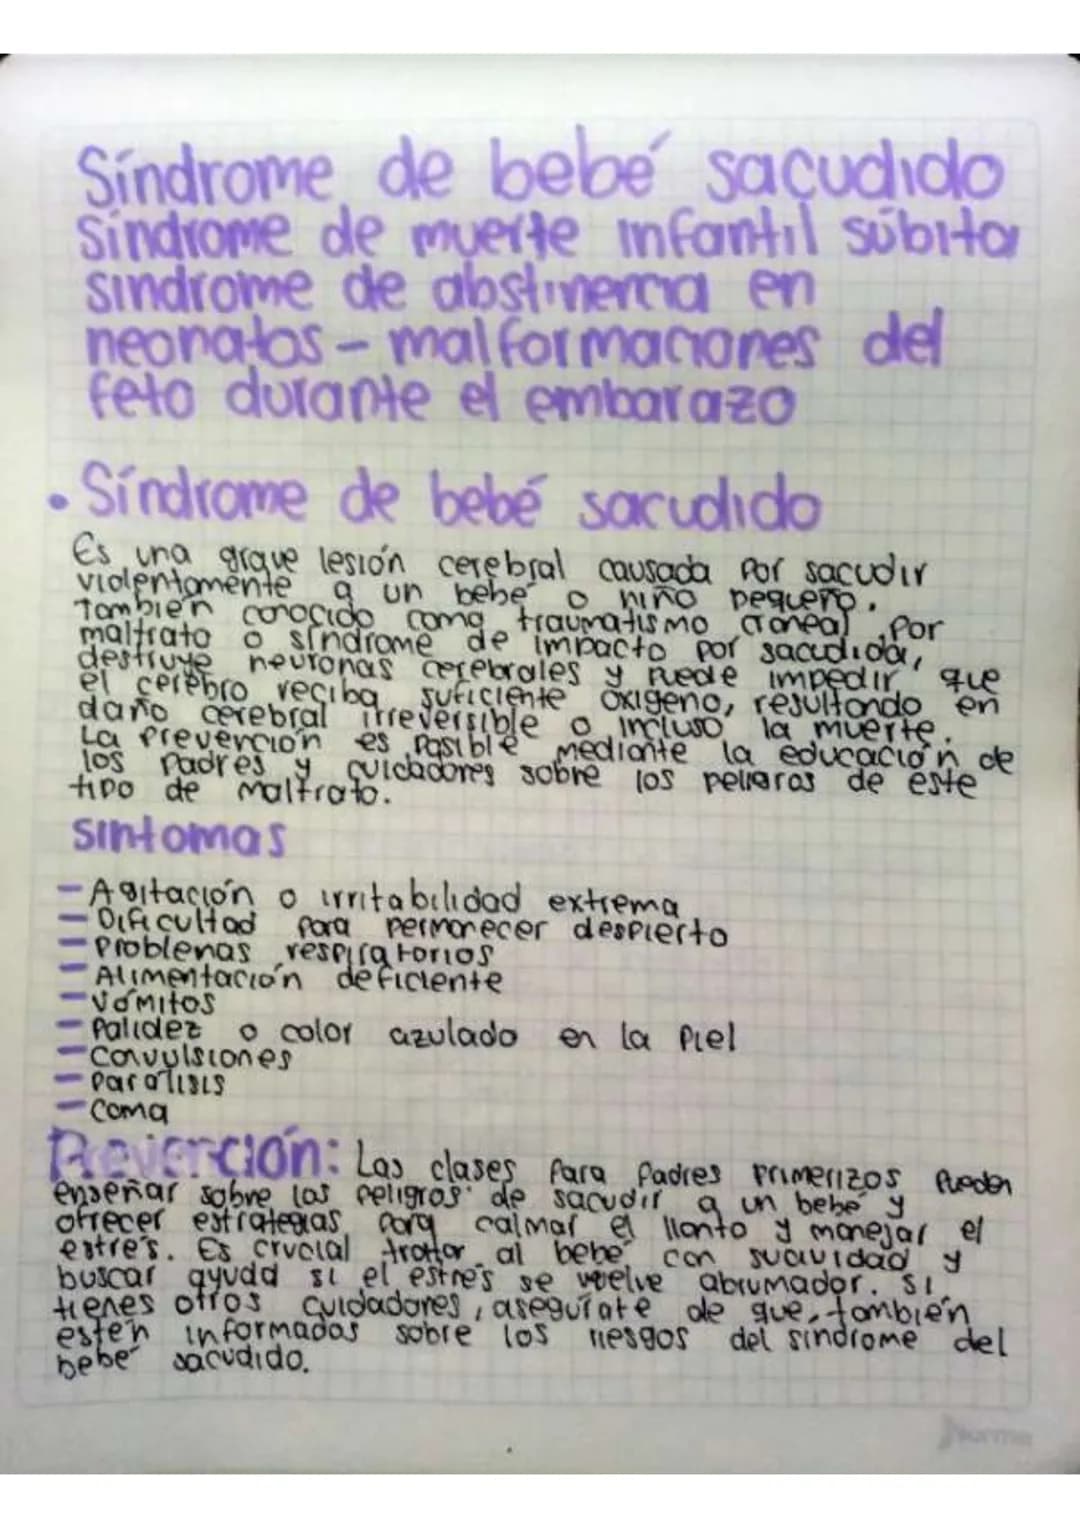 Síndrome de bebé sacudido
síndrome de muerte infantil súbita
sindrome de abstinencia en
neonatos - malformaciones del
feto durante el embarazo
• Síndrome de bebé sacudido
Es una grave lesión cerebral causada por sacudir
violentamente a un bebé o niño pequeño.
También conocido como traumatismo craneal por
maltrato o síndrome de impacto por sacudida,
destruye neuronas cerebrales y puede impedir que
el cerebro reciba suficiente oxígeno, resultando en
daño cerebral irreversible o incluso la muerte.
La Prevención es posible mediante la educación de
los Padres y cuidadores sobre los peligros de este
tipo de maltrato.
sintomas
- Agitación o irritabilidad extrema
- Dificultad para permanecer despierto
- problemas respiratorios
- Alimentación deficiente
- vómitos
- palidez o color azulado en la piel
- convulsiones
- parálisis
- coma
Prevención: Las clases para padres primerizos pueden
enseñar sobre los peligros de sacudir a un bebé y
ofrecer estrategias para calmar el llanto y manejar el
estrés. Es crucial trattar al bebé con suavidad y
buscar ayuda si el estrés se vuelve abrumador. Si
tienes otros cuidadores, asegúrate de que también
estén informados sobre los riesgos del sindrome del
bebé sacudido.
Norma